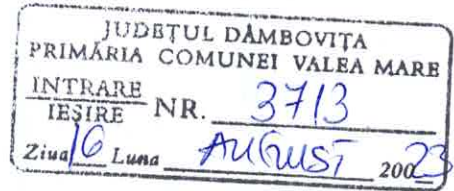 JUDEȚUL DÂMBOVIȚA
PRIMĂRIA COMUNEI VALEA MARE
INTRARE
IEȘIRE NR. 3713
Ziua 16 Luna AUGUST 20023